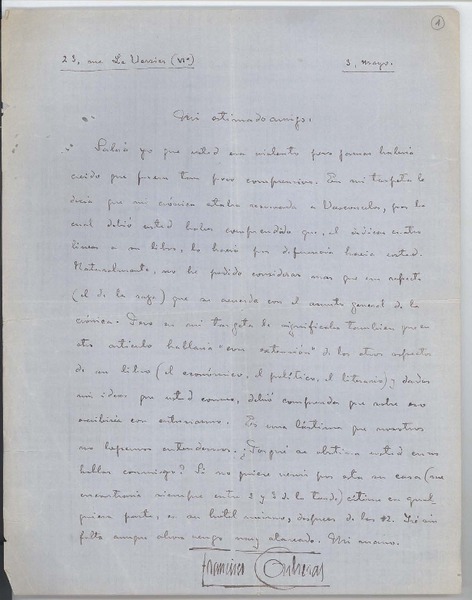 A
23, rue Le Verrier (VIe) 3, mayo.
Mi estimado amigo:
Sabía yo que usted era violento pero jamás habría
creído que fuera tan poco comprensivo. En mi tarjeta le
decía que mi crónica estaba reservada a Vasconcelos, por lo
cual debió usted haber comprendido que, al dedicar cuatro
líneas a su libro, lo hacía por deferencia hacia usted.
Naturalmente, no he podido considerar mas que un aspecto
(el de la raza) que se acuerda con el asunto general de la
crónica. Pero en mi tarjeta le significaba también que en
otro artículo hablaría "con extensión" de los otros aspectos
de su libro (el económico, el político, el literario) y dadas
mis ideas que usted conoce, debió comprender que sobre eso
escribiría con entusiasmo. Es una lástima que nosotros
no logremos entendernos. ¿Porqué se obstina usted en no
hablar conmigo? Si no quiere venir por esta su casa (me
encontraría siempre entre 2 y 3 de la tarde) cíteme en cual
quiera parte, en su hotel mismo, después de las 12. Iré sin
falta aunque ahora tengo muy atareado. Mi mano.
Francisco Contreras